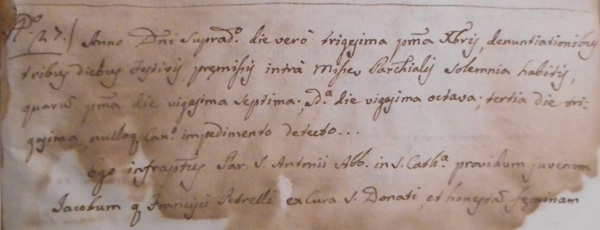 N.º 27. Anno Dñi Suprad.º die verò trigesima pma Xbris, denuntiationibus
tribus diebus festivis premissis intrà Missae Parchialis solemnia habitis,
quarum pma die vigesima septima; 2.da die vigesima octava; tertia die tri-
gesima, nulloq Can.º impedimento detecto...
Ego infraptus Par. S. Antonii Abb. in S. Cath.a providum juvenem
Jacobum q Francisci Petrelli ex Cura S. Donati, et honestam feminam